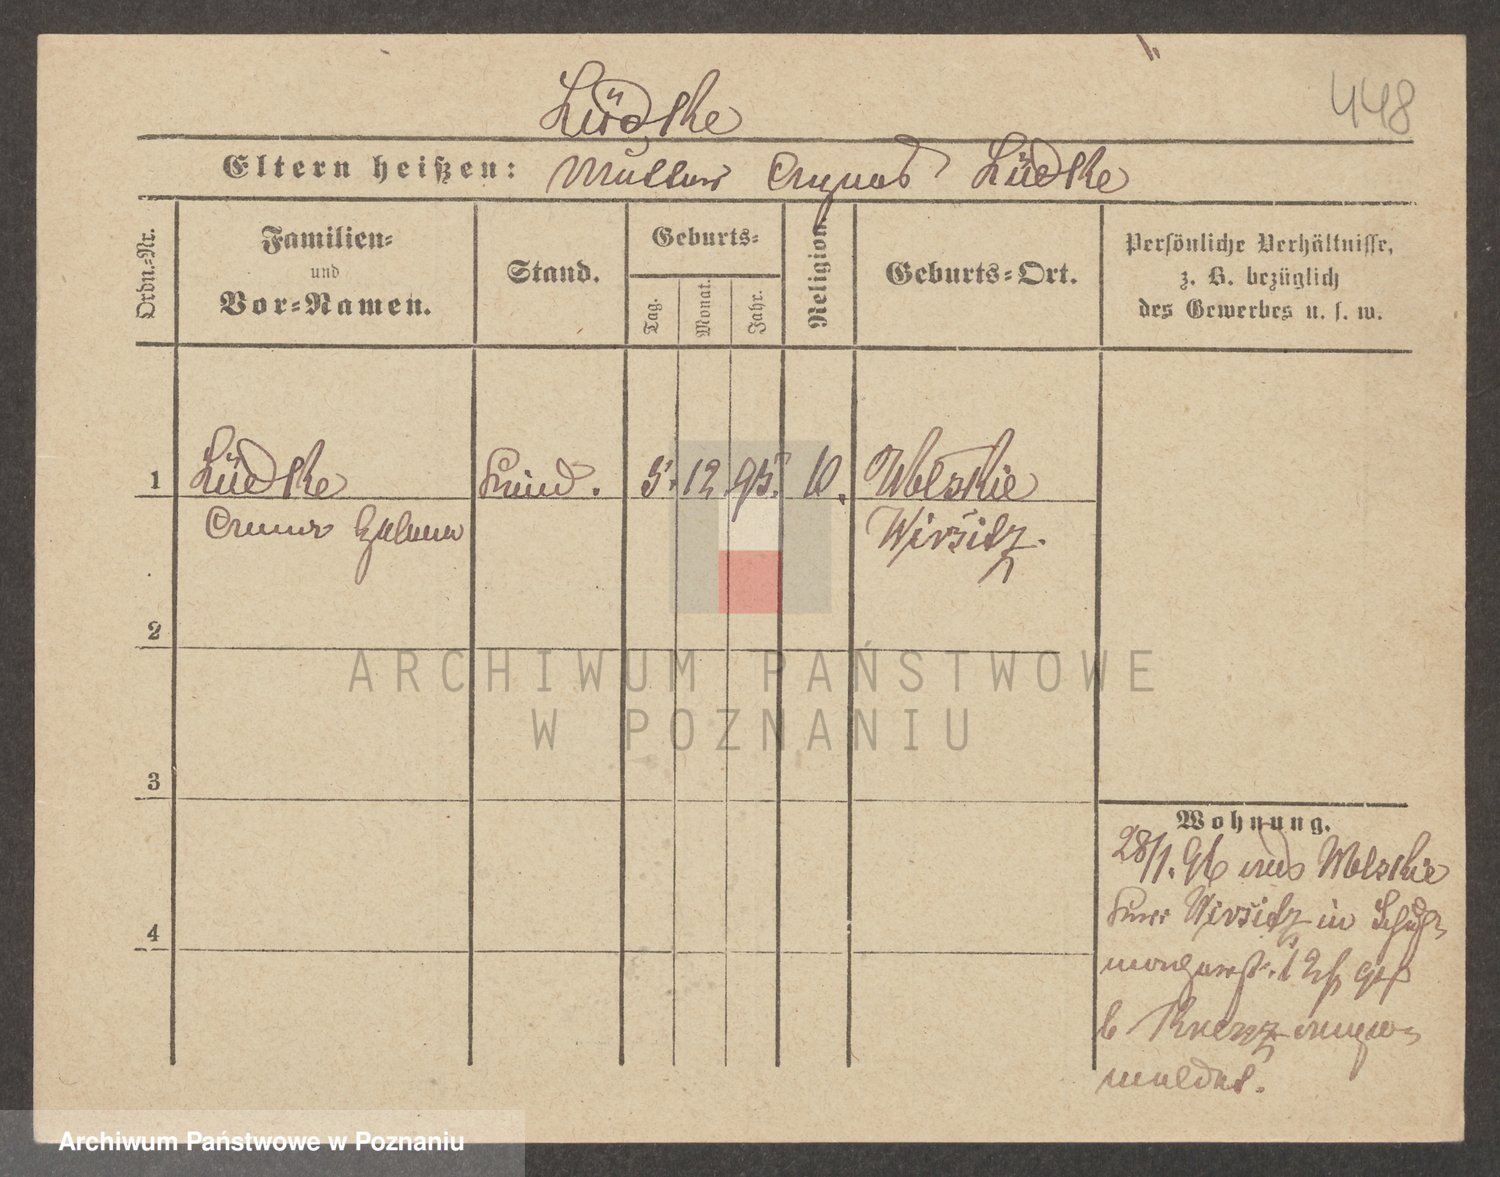 448
Lüdke
Eltern heißen: Mutter Agnes Lüdke
Ordn.-Nr.
Familien-
und
Vor-Namen.
Stand.
Geburts-
Tag.
Monat.
Jahr.
Religion.
Geburts-Ort.
Persönliche Verhältnisse,
z. B. bezüglich
des Gewerbes u. s. w.
1 Lüdke Kind. 5. 12 95. Wolskie
Anna Helena Wirsitz.
2
3
4
Wohnung.
28/1. 96 aus Wolskie
Wirsitz in
12
b ange-
meldet.
ARCHIWUM PAŃSTWOWE
W POZNANIU
Archiwum Państwowe w Poznaniu